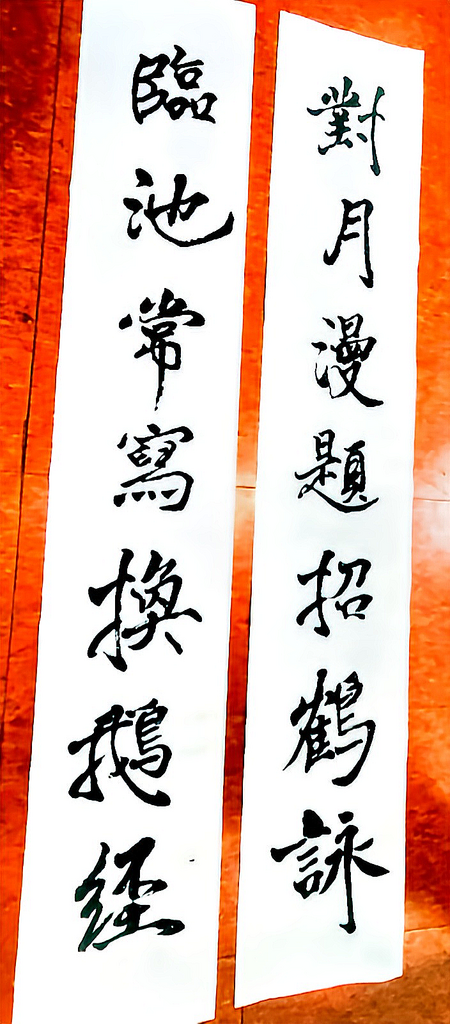 對月漫題招鶴詠
臨池常寫換鵝經